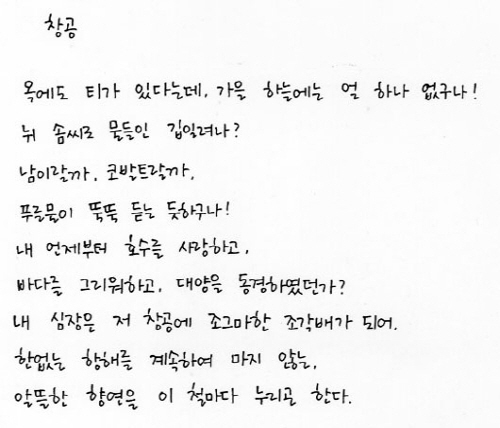 창공
옥에도 티가 있다는데, 가을 하늘에는 얼 하나 없구나!
뉘 솜씨로 물들인 깁일려나?
남이랄까, 코발트랄까,
푸를물이 뚝뚝 듣는 듯하구나!
내 언제부터 호수를 사랑하고,
바다를 그리워하고, 대양을 동경하였던가?
내 심장은 저 창공에 조그마한 조각배가 되어,
한없는 항해를 계속하여 마지 않는,
알뜰한 향연을 이 철마다 누리곤 한다.